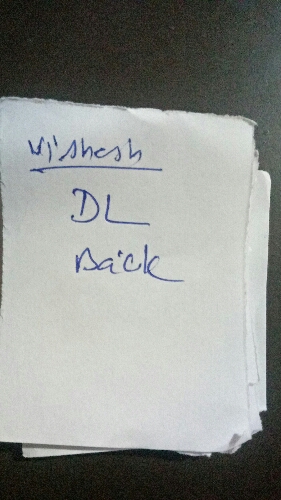 Vishesh
DL
Back